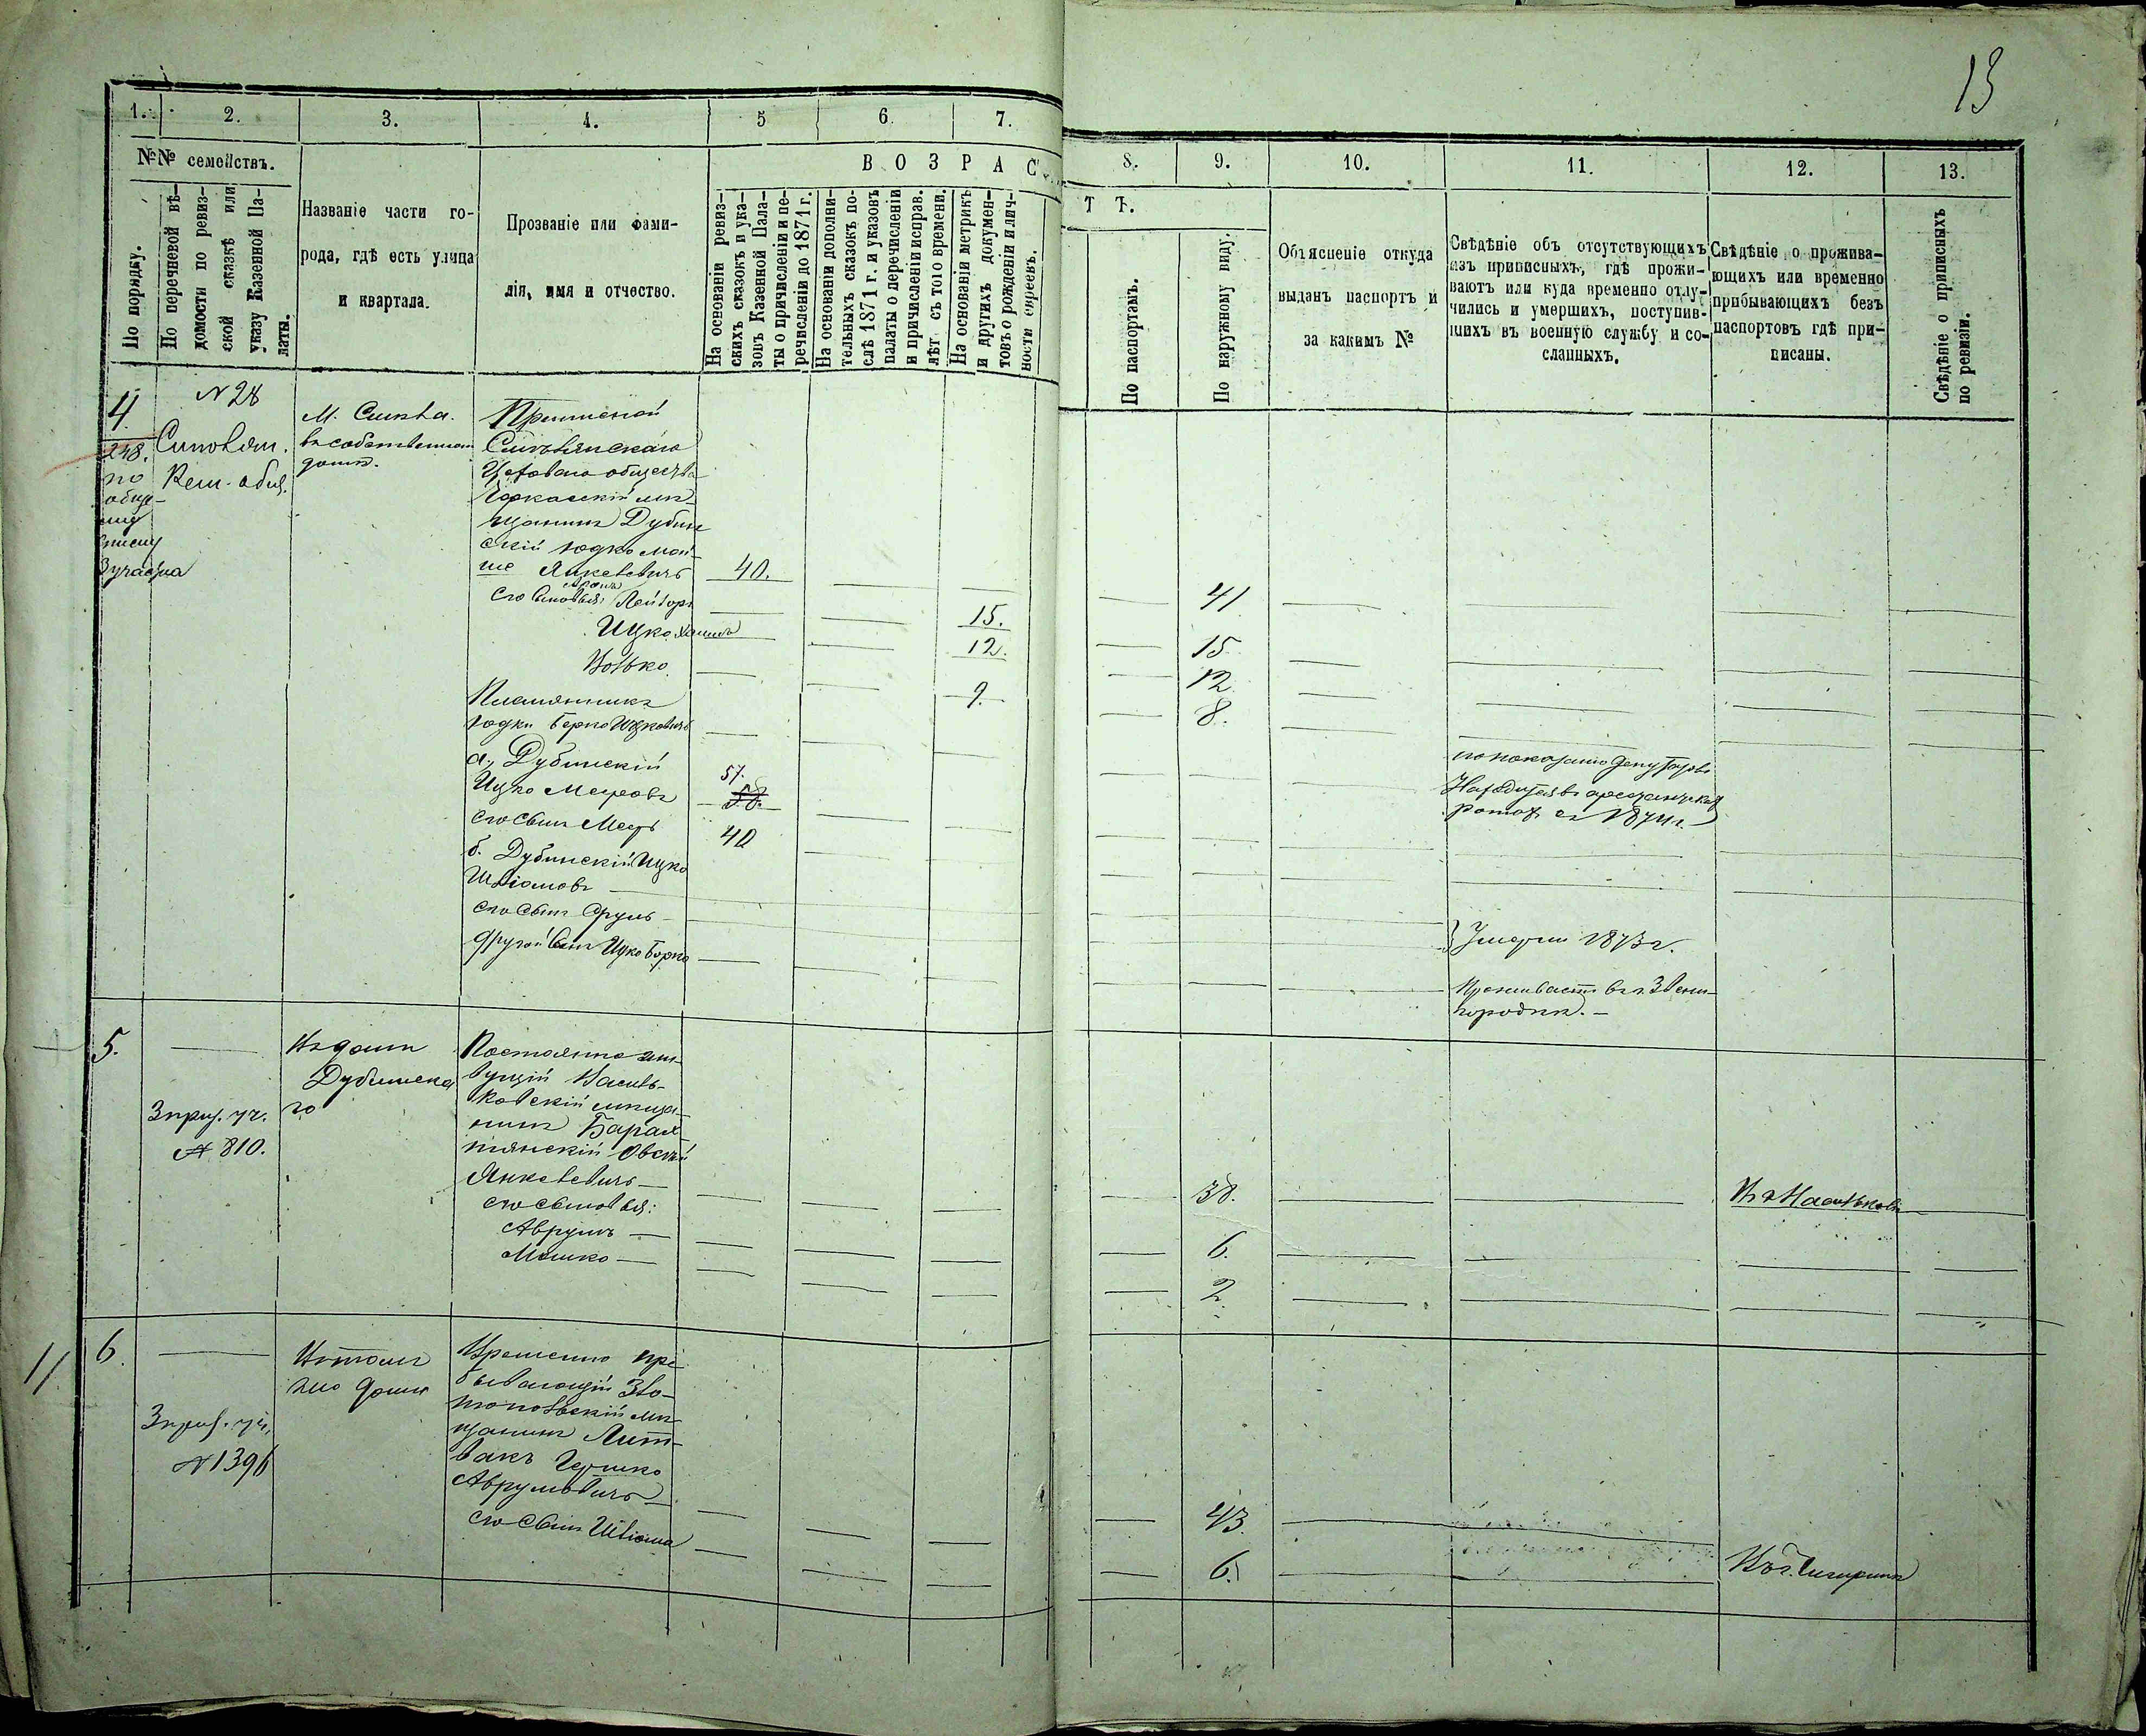 13
1. 2. 3. 4. 5 6. 7. 8. 9. 10. 11. 12. 13.
№№ семействъ.
В О З Р А С Т Ъ.
По порядку.
По перечневой вѣ-
домости по ревиз-
ской сказкѣ или
указу Казенной Па-
латы.
Названіе части го-
рода, гдѣ есть улица
и квартала.
Прозваніе или фами-
лія, имя и отчество.
На основаніи ревиз-
скихъ сказокъ и ука-
зовъ Казенной Пала-
ты о причисленіи и пе-
речисленіи до 1871 г.
На основаніи дополни-
тельныхъ сказокъ по-
слѣ 1871 г. и указовъ
палаты о перечисленіи
и причисленіи исправ.
лѣт съ того времени.
На основаніи метрикъ
и другихъ докумен-
товъ о рожденіи и лич-
ности евреевъ.
По паспортамъ.
По наружному виду.
Объясненіе откуда
выданъ паспортъ и
за какимъ №
Свѣдѣніе объ отсутствующихъ
изъ приписныхъ, гдѣ прожи-
ваютъ или куда временно отлу-
чились и умершихъ, поступив-
шихъ въ военную службу и со-
сланныхъ.
Свѣдѣніе о прожива-
ющихъ или временно
прибывающихъ безъ
паспортовъ гдѣ при-
писаны.
Свѣдѣніе о приписныхъ
по ревизіи.
4.
248.
по
обще-
му
списку
3 участка
№ 28
М.
въ собственномъ
домѣ.
Приписной
общества
мѣ-
щанинъ Дубин
скій Іодко Мой-
ше Янкевичъ 40. 41
его сыновья: Лейзоръ 15. 15
Ицко Хаимъ 12. 12
Волько 9. 8.
Племянникъ
Іодки Берко Ицковичъ
а, Дубинскій
Ицко Мееровъ 57. 58.
его сынъ Мееръ 40
по показанію депутатовъ
ротахъ съ 1874 г.
б. Дубинскій Ицко
Шліомовъ
его сынъ Сруль
Умерли 1873 г.
другой сынъ Ицко Берко
Проживаетъ въ г. Звени-
городкѣ.
5.
3 приз. уч.
№ 810.
Въ домѣ
Дубинска
го
Постоянно жи-
вущій Василь-
ковскій мѣща-
нинъ Барах-
тянскій Овсѣй
Янкелевичъ 38. Въ г. Васильковѣ
его сыновья:
Аврумъ 6.
Мошко 2.
11
6.
3 приз. уч.
№ 1396
Въ томъ
же домѣ
Временно пре
бывающій
мѣ
щанинъ Лит-
вакъ Гершко
Аврумовичъ 43.
его сынъ Шліома 6.
Въ г. Чигиринѣ